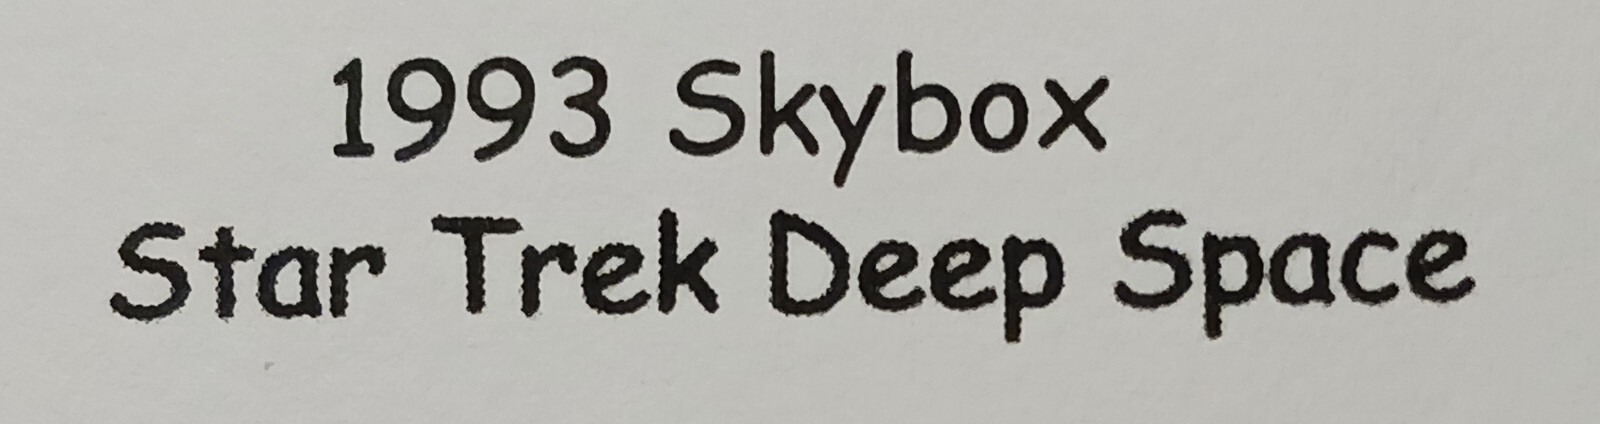 1993 Skybox
Star Trek Deep Space